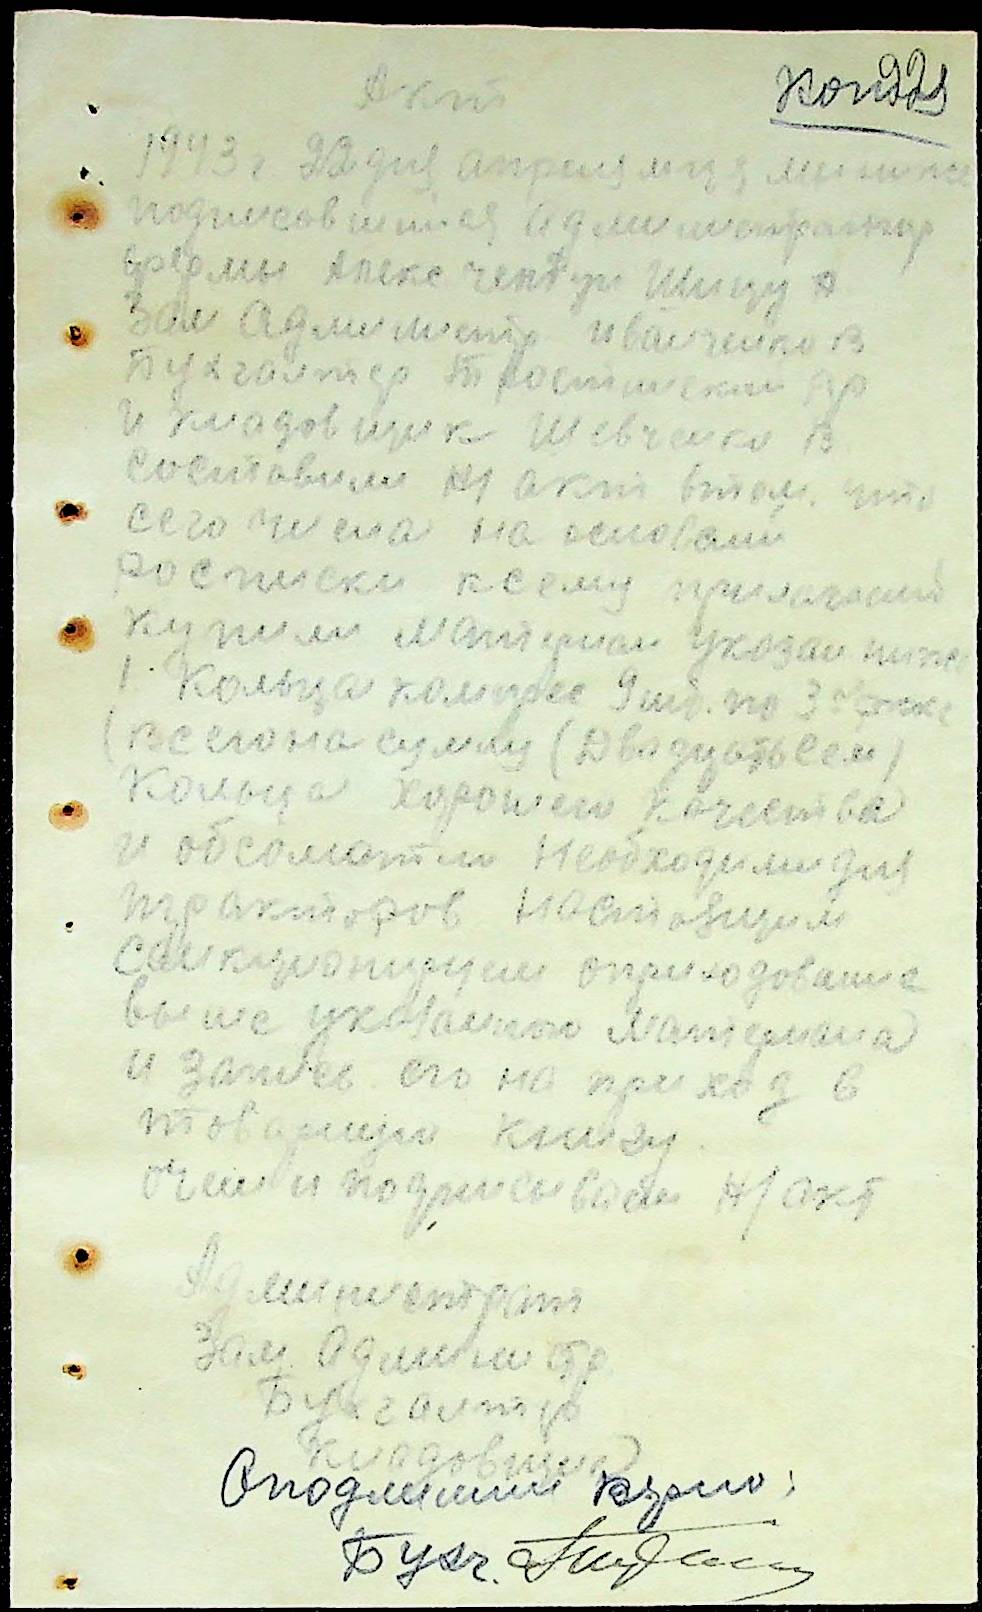 Копия
Акт
1943 г 22 дня апреля м-ця мы ниже
подписовшиеся Администратор
фермы Александри Шицу А
Зам Админист Иванченко В
Бухгалтер
и кладовщик Шевченко В
составили н/ акт втом. что
сего числа на основами
Росписки ксему прилагаемо
купили Материал указан ниже
1. Кольца компрес 9 шт. по 3
(всего на сумму (Двадцать Сем)
Кольца хорошего качества
и обсолютно Необходими для
тракторов Настоящим
санкционируем оприходование
выше указанного Материала
и запись его на приход в
товарную книгу.
очем и подписываем н/ акт
Администрат
Зам. Админи стр.
Бухгалтер
Кладовщик
Сподлинным верно:
Бухг.